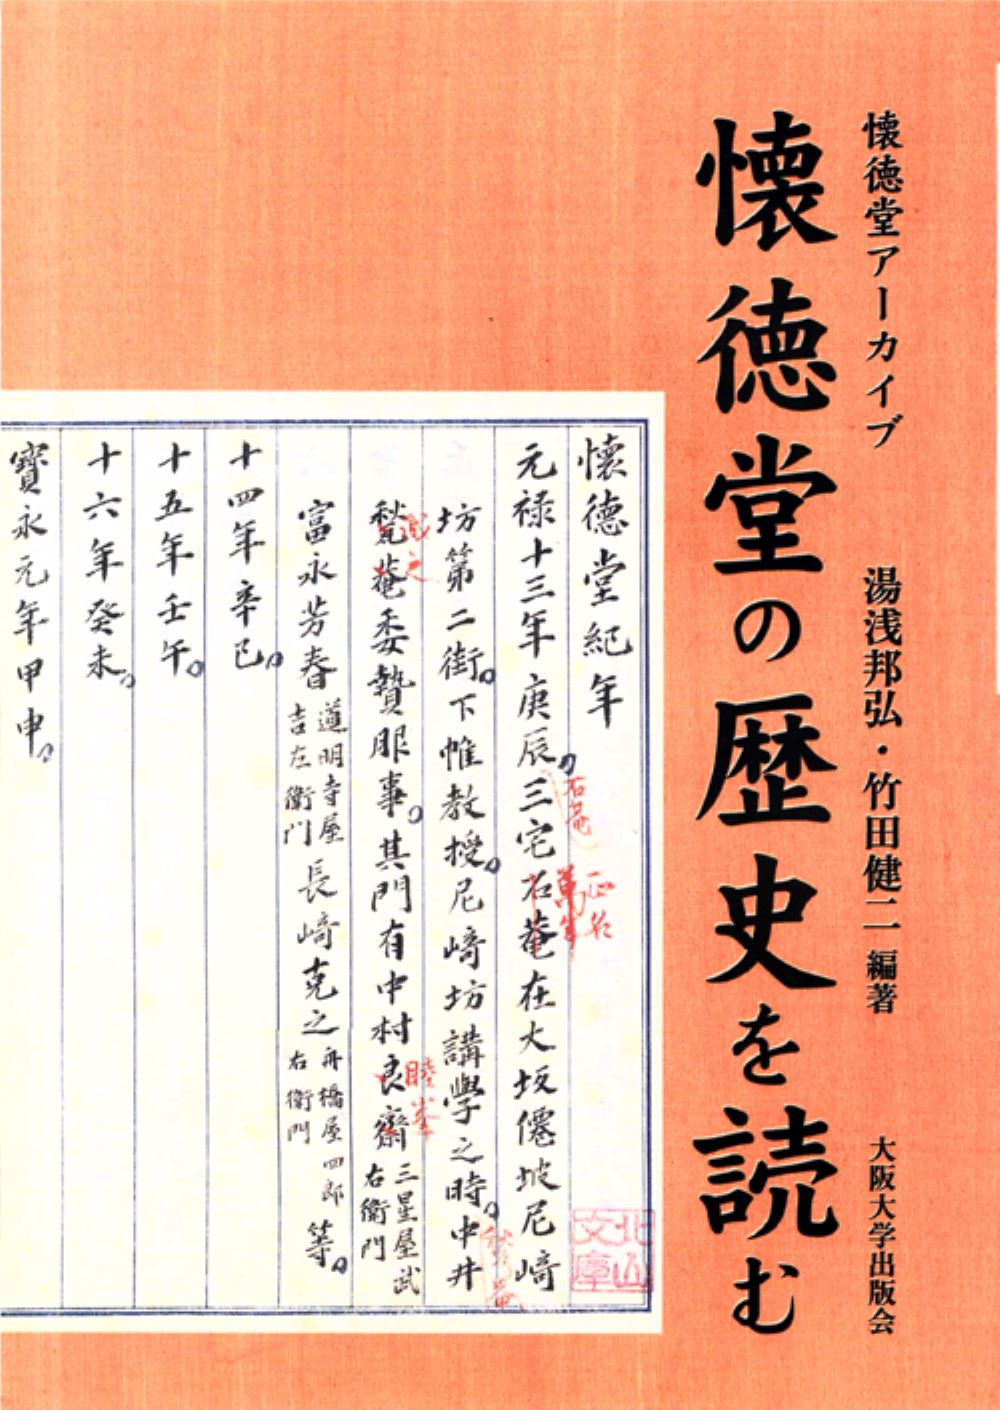 懐徳堂アーカイブ
湯浅邦弘・竹田健二 編著
大阪大学出版会
懐徳堂の歴史を読む
懐徳堂紀年
元禄十三年庚辰。三宅石菴在大坂僊坡尼﨑
坊第二街。下帷教授。尼﨑坊講學之時。中井
甃菴委贄服事。其門有中村良齋 三星屋武右衛門
富永芳春 道明寺屋吉左衛門 長﨑克之 舟橋屋四郎右衛門 等。
十四年辛巳。
十五年壬午。
十六年癸未。
寶永元年甲申。
石菴
正名
萬年
睦峯
甃菴
北山文庫